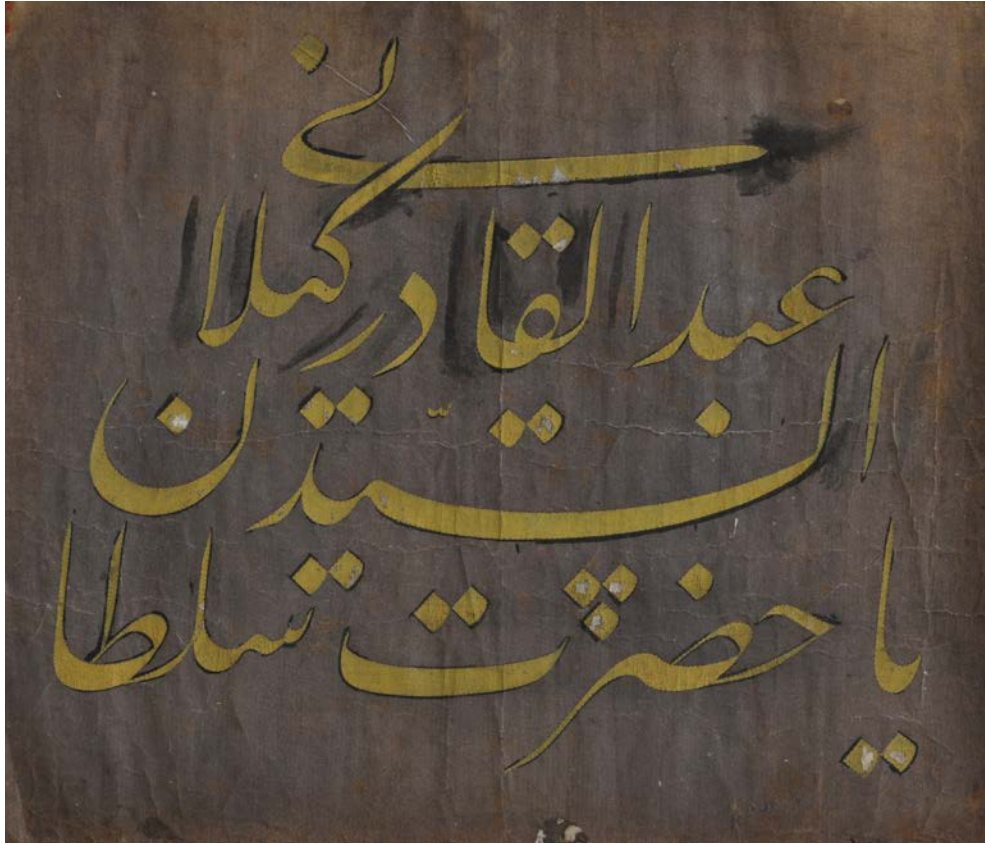 يا حضرت سلطا
ن السيّد
عبد القادر كيلا
ني